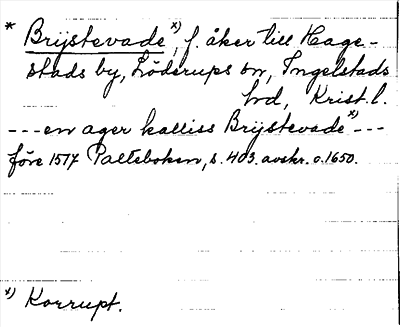 * Brÿstevade x), f. åker till Hage-
stads by, Löderups sn, Ingelstads
hd, Krist. l.
---en ager kalliss Brÿstevade x)---
före 1517 Palteboken, s. 403. avskr. o. 1650.
x) Korrupt.